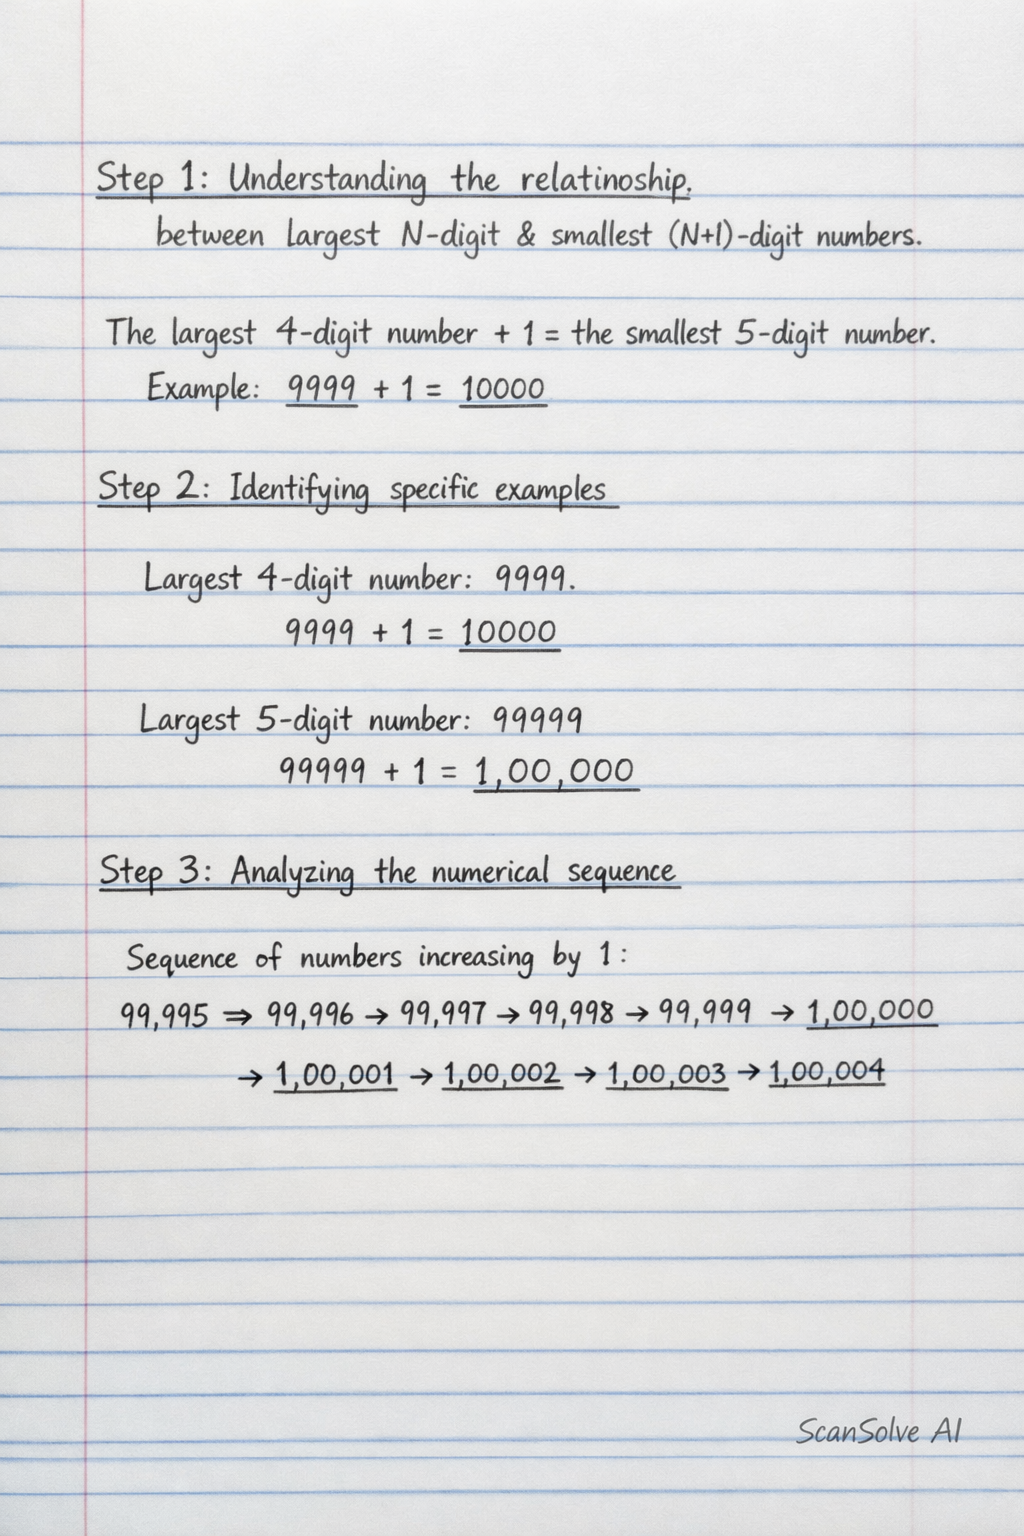 Step 1: Understanding the relatinoship.
between largest N-digit & smallest (N+1)-digit numbers.
The largest 4-digit number + 1 = the smallest 5-digit number.
Example: 9999 + 1 = 10000
Step 2: Identifying specific examples
Largest 4-digit number: 9999.
9999 + 1 = 10000
Largest 5-digit number: 99999
99999 + 1 = 1,00,000
Step 3: Analyzing the numerical sequence
Sequence of numbers increasing by 1:
99,995 ⇒ 99,996 → 99,997 → 99,998 → 99,999 → 1,00,000
→ 1,00,001 → 1,00,002 → 1,00,003 → 1,00,004
ScanSolve AI